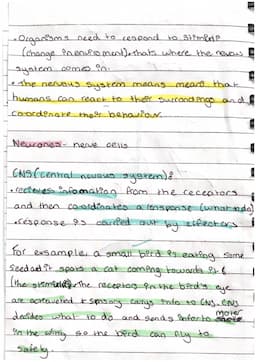 • Organisms need to respond to stimuli
(change in enviroment). thats where the nevous
system comes in:
• the nervous system means meant that
humans can react to their surrondings and
coordinate their behavior.
Neurones - nerve cells
CNS (central nevous system):
• recieves infomation from the receptors
and then co-ordinates a response (what to do)
• response is carried out by effectors
For example: a small bird is eating some
seed and it spots a cat coming towards it
(the stimulus). the receptors in the bird's eye
are activated & sensory carys info to CNS. CNS
decides what to do and sends info to motor
in the wing so the bird can fly to
safety.